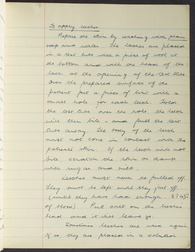 To apply leeches
Prepare the skin by washing with plain
soap and water. The leeches are placed
in a test tube with a piece of wool at
the bottom and with the head of the
leech at the opening of the test tube
Over the prepared surface of the
patient put a piece of lint with a
small hole for each leech. Invert
the test tube over the hole, the leech
will then bite, and full the test
tube away. The body of the leech
must not come in contact with the
patient's skin. If the leech will not
bite scratch the skin or damp
with sugar and milk.
Leeches must never be pulled off.
They must be left until they fall off.
(until they have had enough.
of blood). Put salt on the leeches
head and it then leaves go.
Sometimes leeches are used again
if so they are placed in a solution